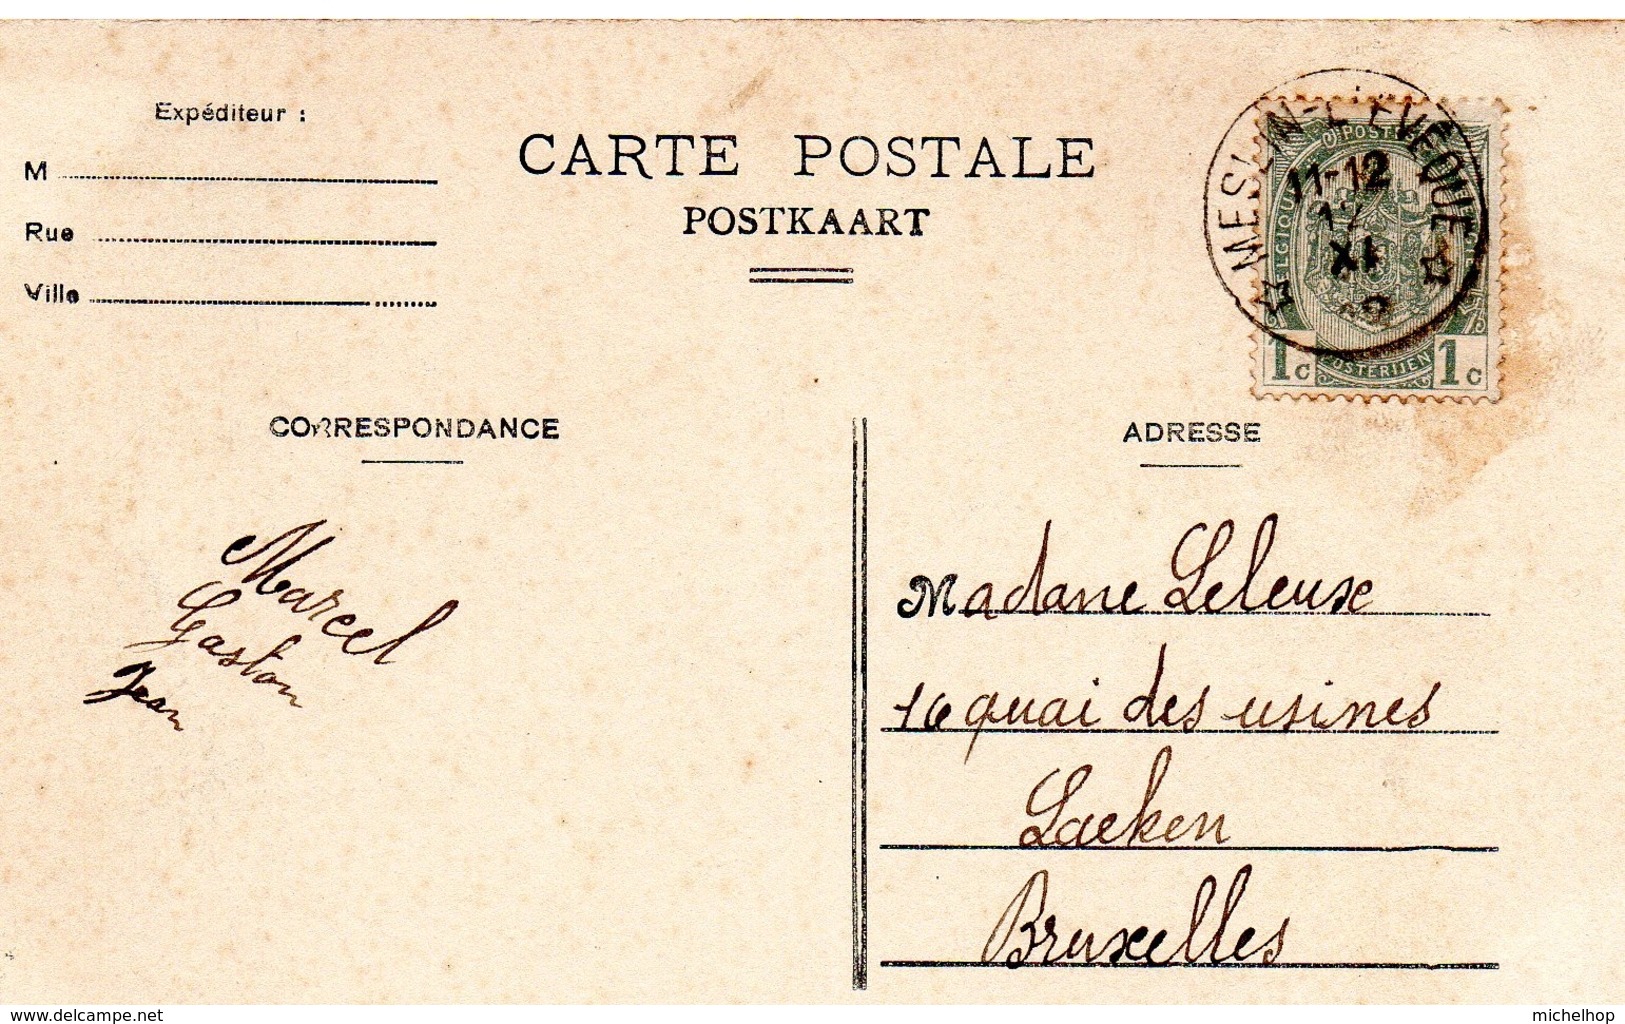 Expéditeur :
M
Rue
Ville
CARTE POSTALE
POSTKAART
MESLIN-L'EVÊQUE
11-12
12
XI
POSTES
BELGIQUE
POSTERIJEN
1c 1c
CORRESPONDANCE
ADRESSE
Marcel
Gaston
Jean
Madame Leleux
16 quai des usines
Laeken
Bruxelles
www.delcampe.net
michelhop